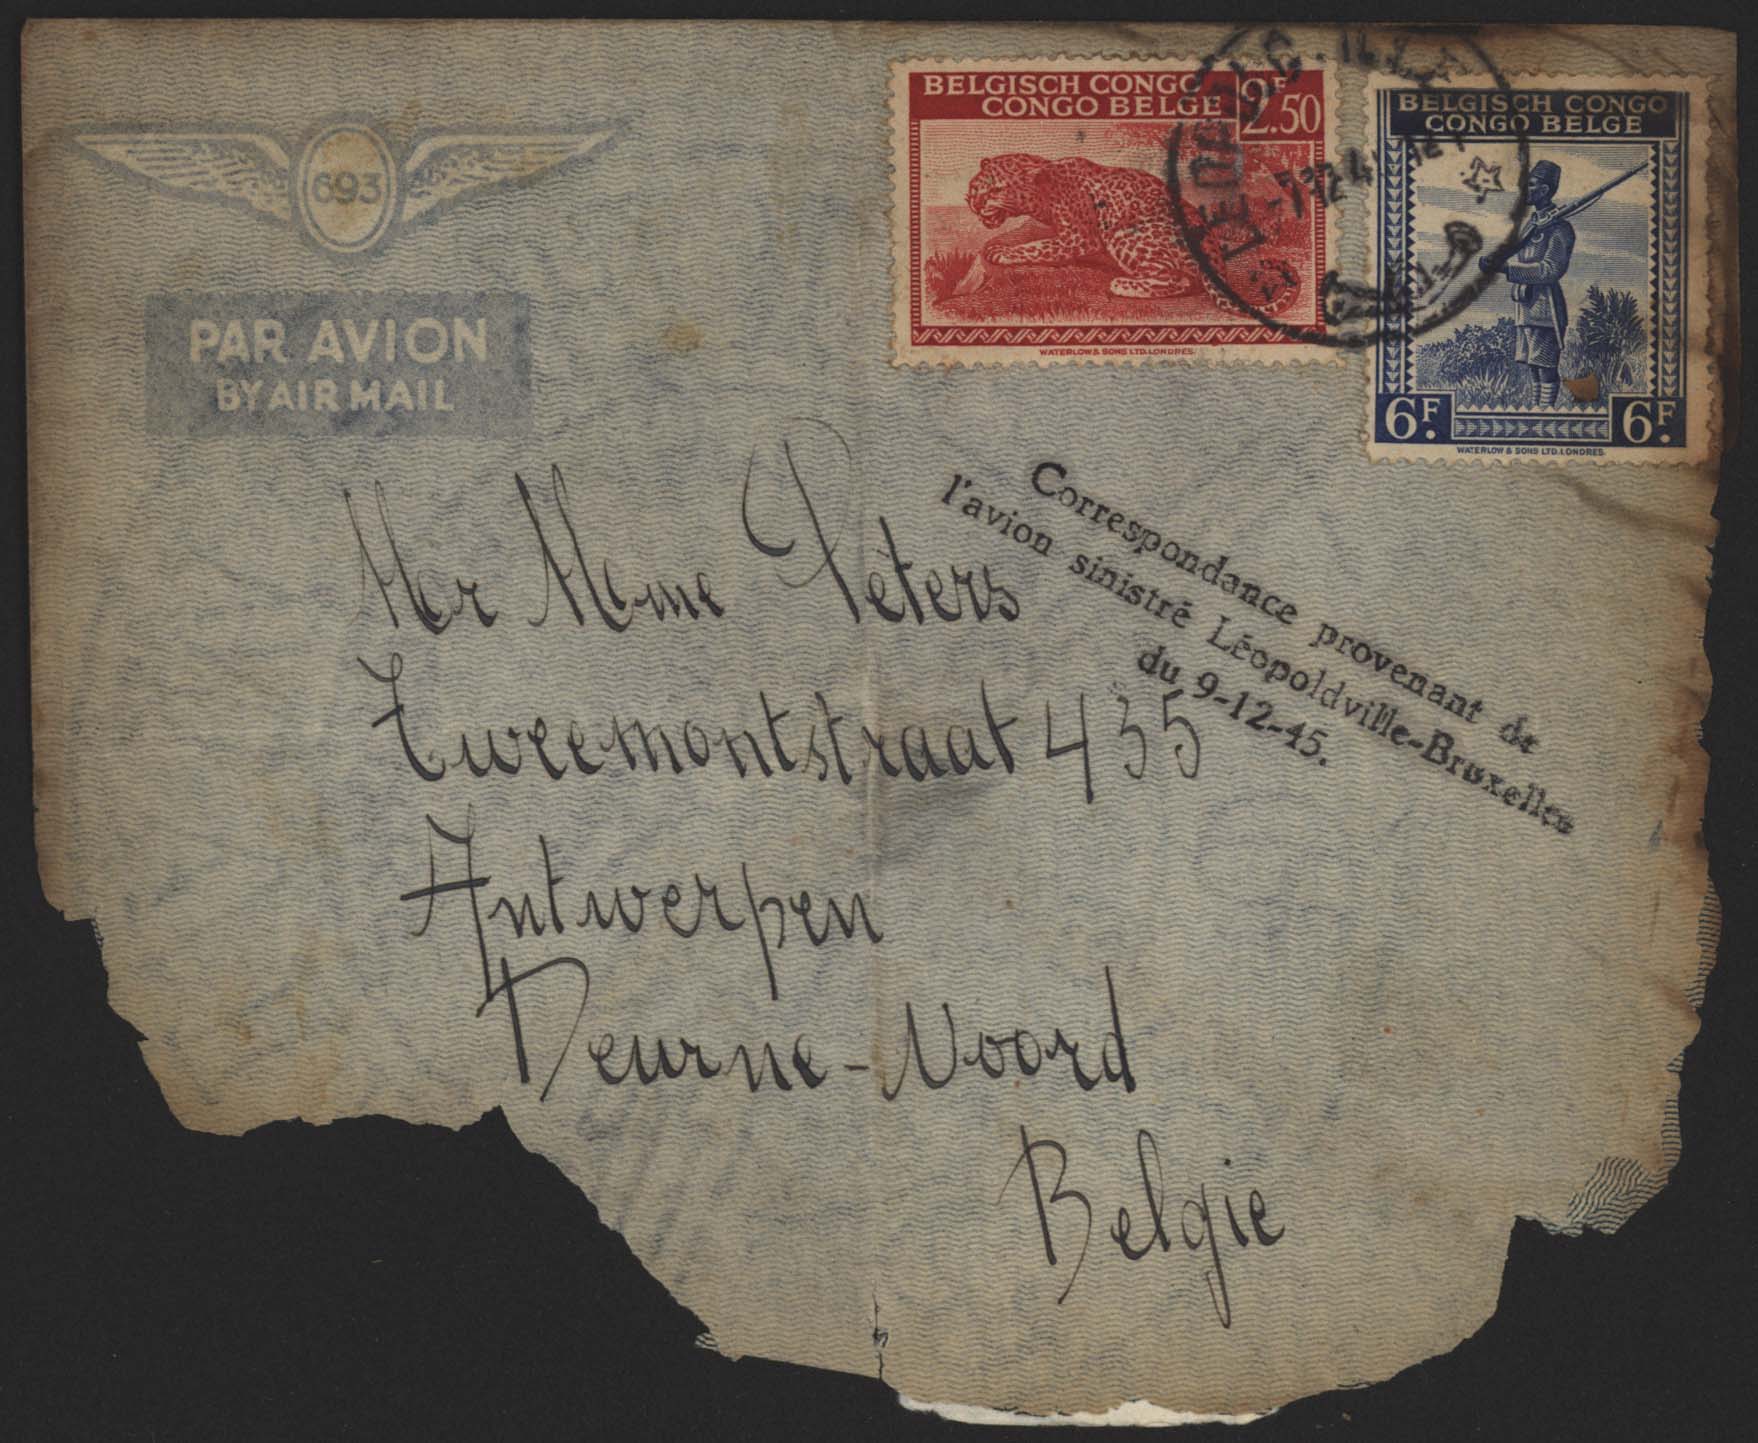 693
PAR AVION
BY AIR MAIL
BELGISCH CONGO
CONGO BELGE
2.F50
WATERLOW & SONS LTD. LONDRES.
BELGISCH CONGO
CONGO BELGE
6F. 6F.
WATERLOW & SONS LTD. LONDRES.
LEOPOLDVILLE
Correspondance provenant de
l'avion sinistré Léopoldville-Bruxelles
du 9-12-45.
Mr Mme Péters
Tweemontstraat 435
Antwerpen
Deurne-Noord
Belgie